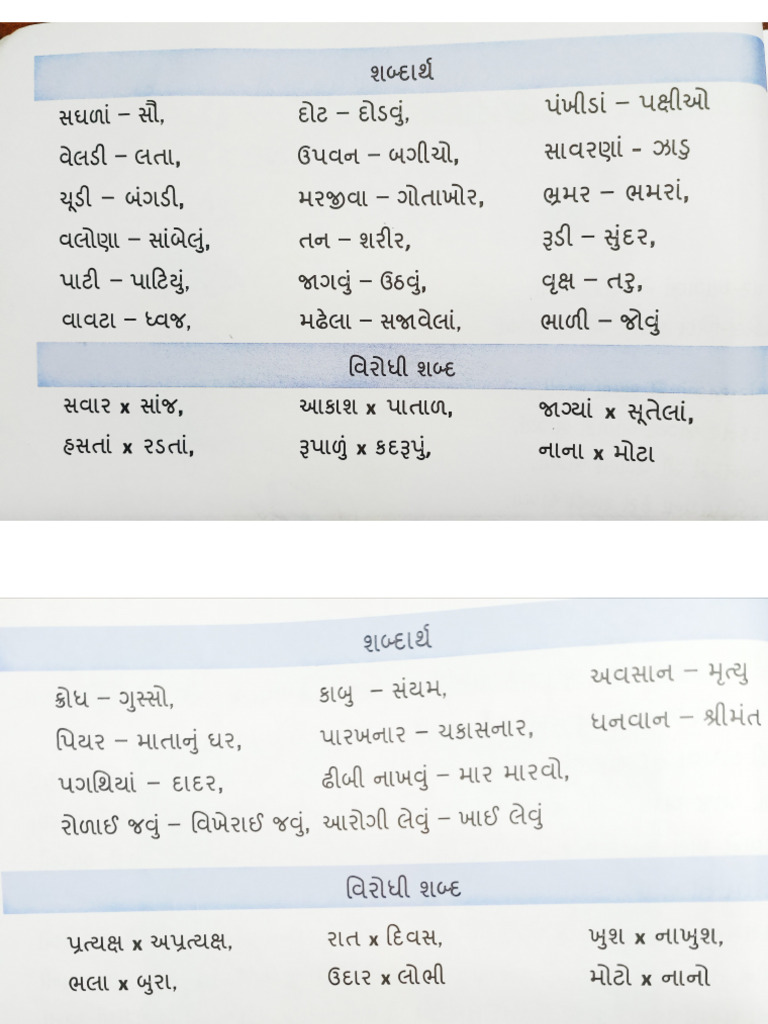 શબ્દાર્થ
સઘળાં – સૌ, દોટ – દોડવું, પંખીડાં – પક્ષીઓ
વેલડી – લતા, ઉપવન – બગીચો, સાવરણાં - ઝાડુ
ચૂડી – બંગડી, મરજીવા – ગોતાખોર, ભ્રમર – ભમરાં,
વલોણા – સાંબેલું, તન – શરીર, રૂડી – સુંદર,
પાટી – પાટિયું, જાગવું – ઉઠવું, વૃક્ષ – તરુ,
વાવટા – ધ્વજ, મઢેલા – સજાવેલાં, ભાળી – જોવું
વિરોધી શબ્દ
સવાર x સાંજ, આકાશ x પાતાળ, જાગ્યાં x સૂતેલાં,
હસતાં x રડતાં, રૂપાળું x કદરૂપું, નાના x મોટા
શબ્દાર્થ
ક્રોધ – ગુસ્સો, કાબુ – સંયમ, અવસાન – મૃત્યુ
પિયર – માતાનું ઘર, પારખનાર – ચકાસનાર, ધનવાન – શ્રીમંત
પગથિયાં – દાદર, ઢીબી નાખવું – માર મારવો,
રોળાઈ જવું – વિખેરાઈ જવું, આરોગી લેવું – ખાઈ લેવું
વિરોધી શબ્દ
પ્રત્યક્ષ x અપ્રત્યક્ષ, રાત x દિવસ, ખુશ x નાખુશ,
ભલા x બુરા, ઉદાર x લોભી મોટો x નાનો